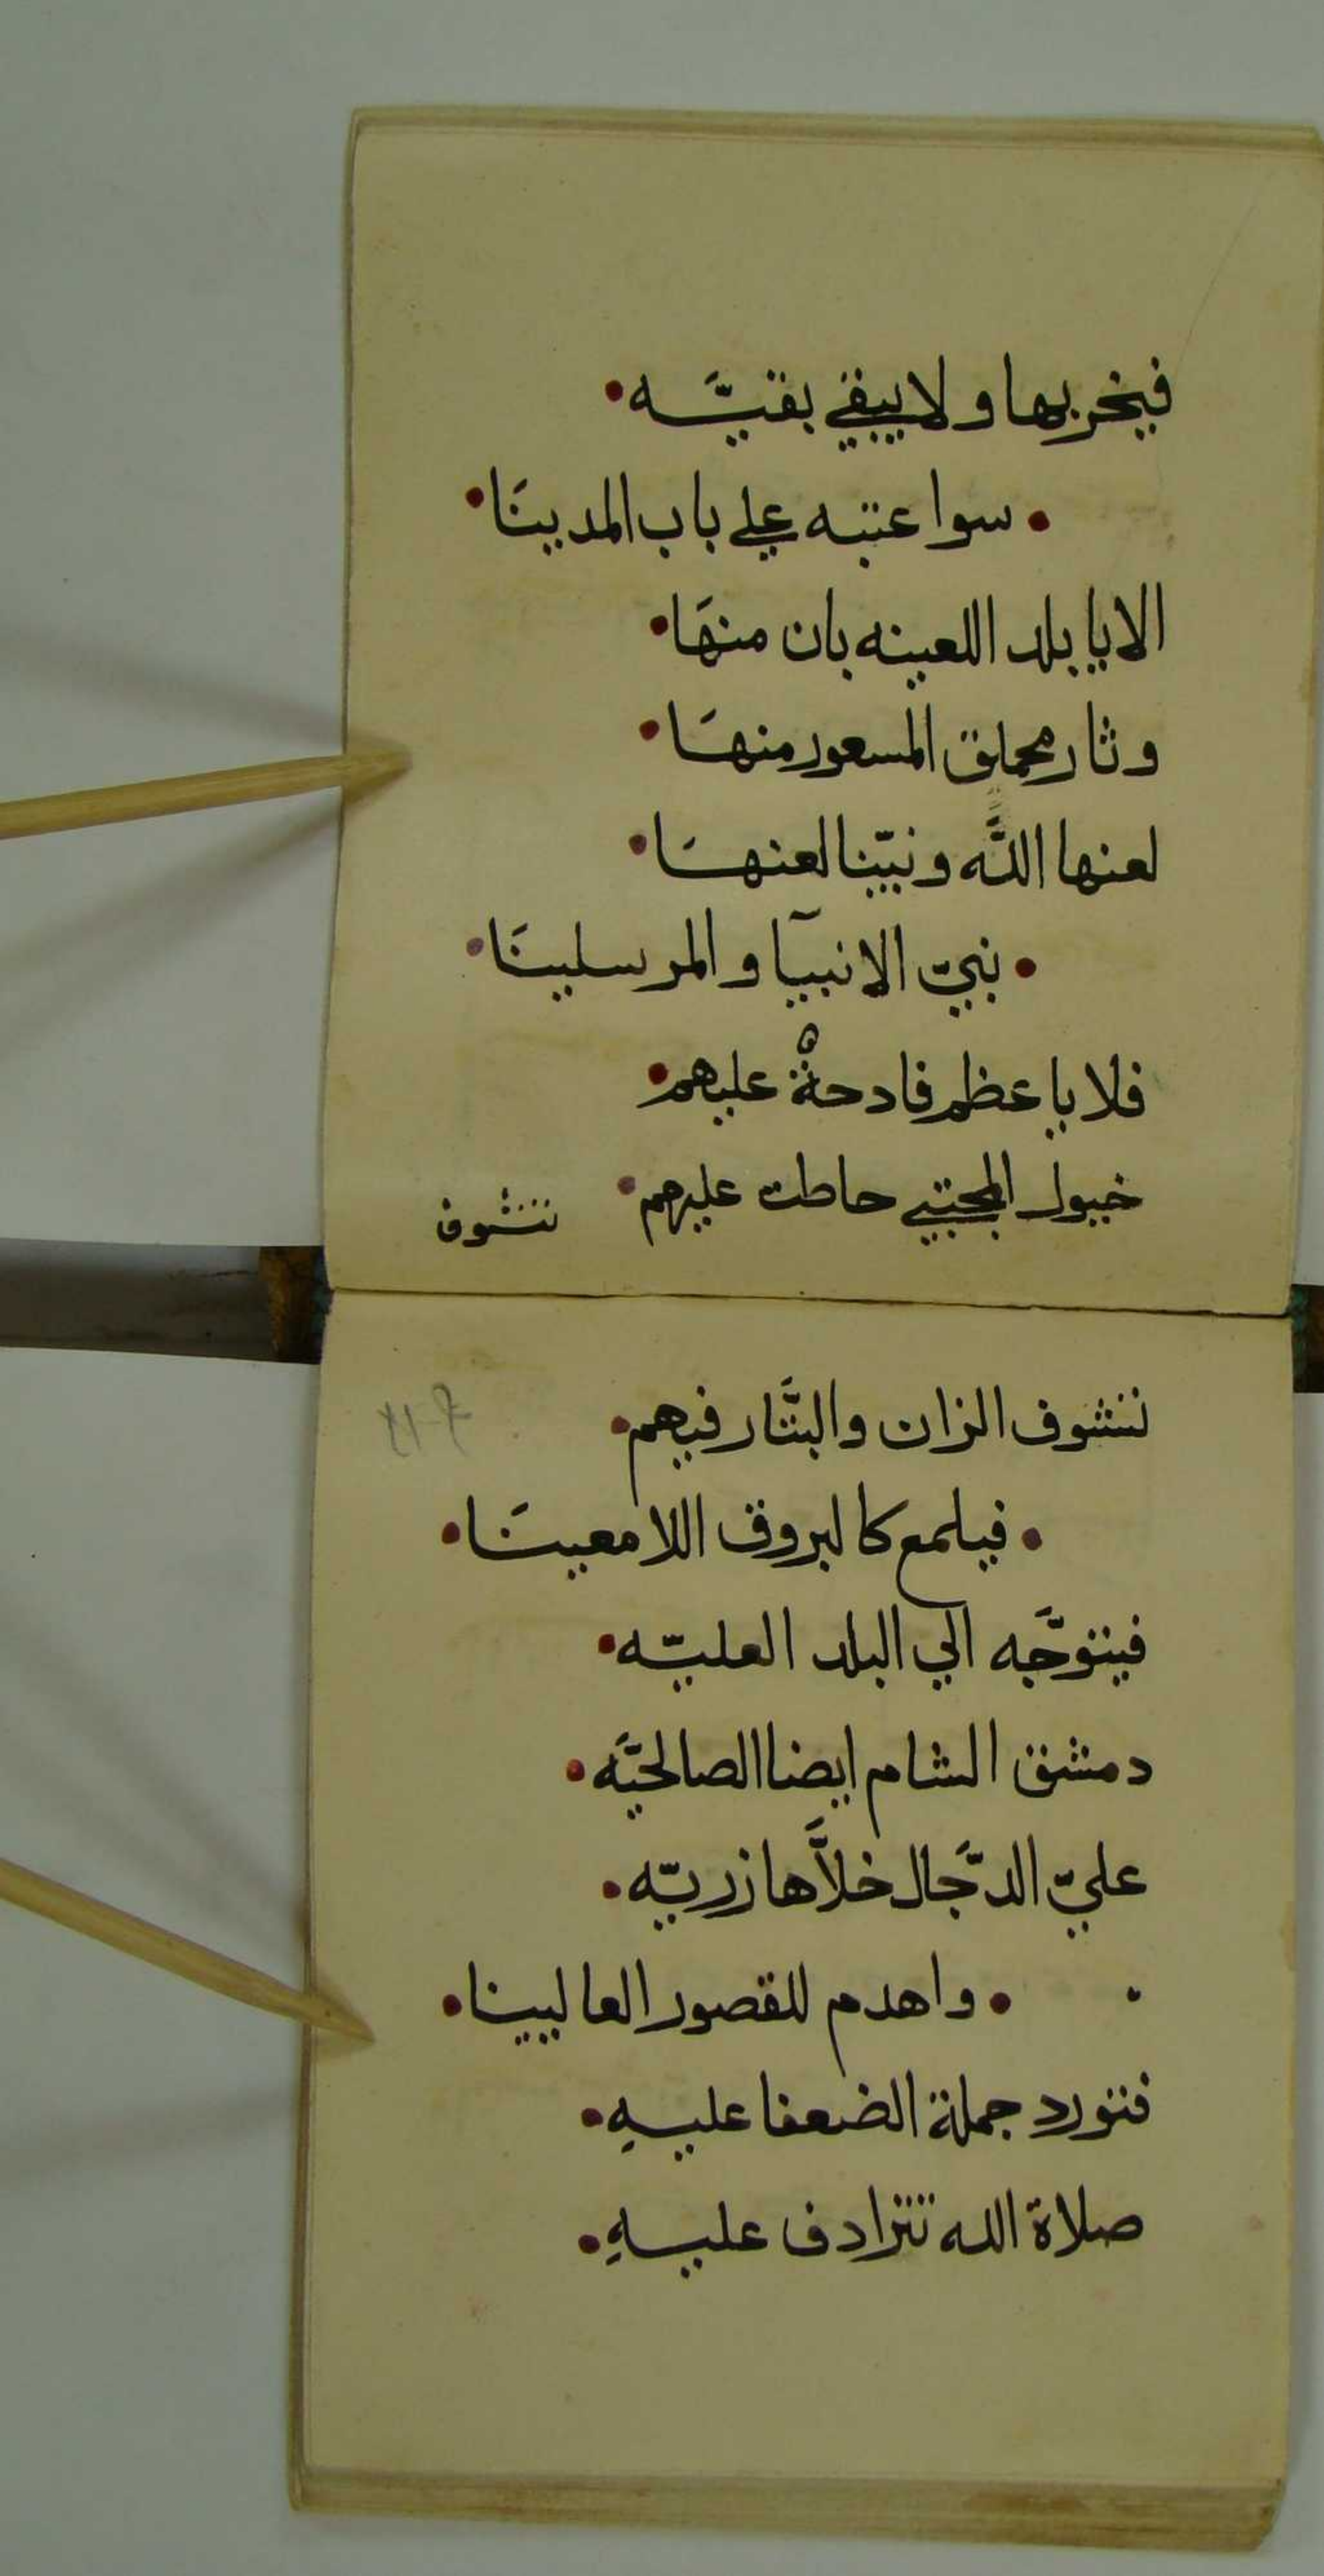 فيخربها ولا يبقي بقيَّه
سوا عتبه علي باب المدينَا
الا يا بلد اللعينه بان منهَا
وثار محملق المسعور منهَا
لعنها اللَّه ونبيّنا لعنهَا
نبيّ الانبيآ والمرسلينَا
فلا يا عظم فادحةٌ عليهم
خيول المجتبي حاطت عليهم
تتشوف
تتشوف الزان والبتَّار فيهم
فيلمع كالبروق اللامعينَا
فيتوجَّه الي البلد العليّه
دمشق الشام ايضا الصالحيَّه
عليّ الدّجال خلاَّها زريّه
واهدم للقصور العاليينا
فتورد جملة الضعفا عليهِ
صلاة الله تترادف عليهِ